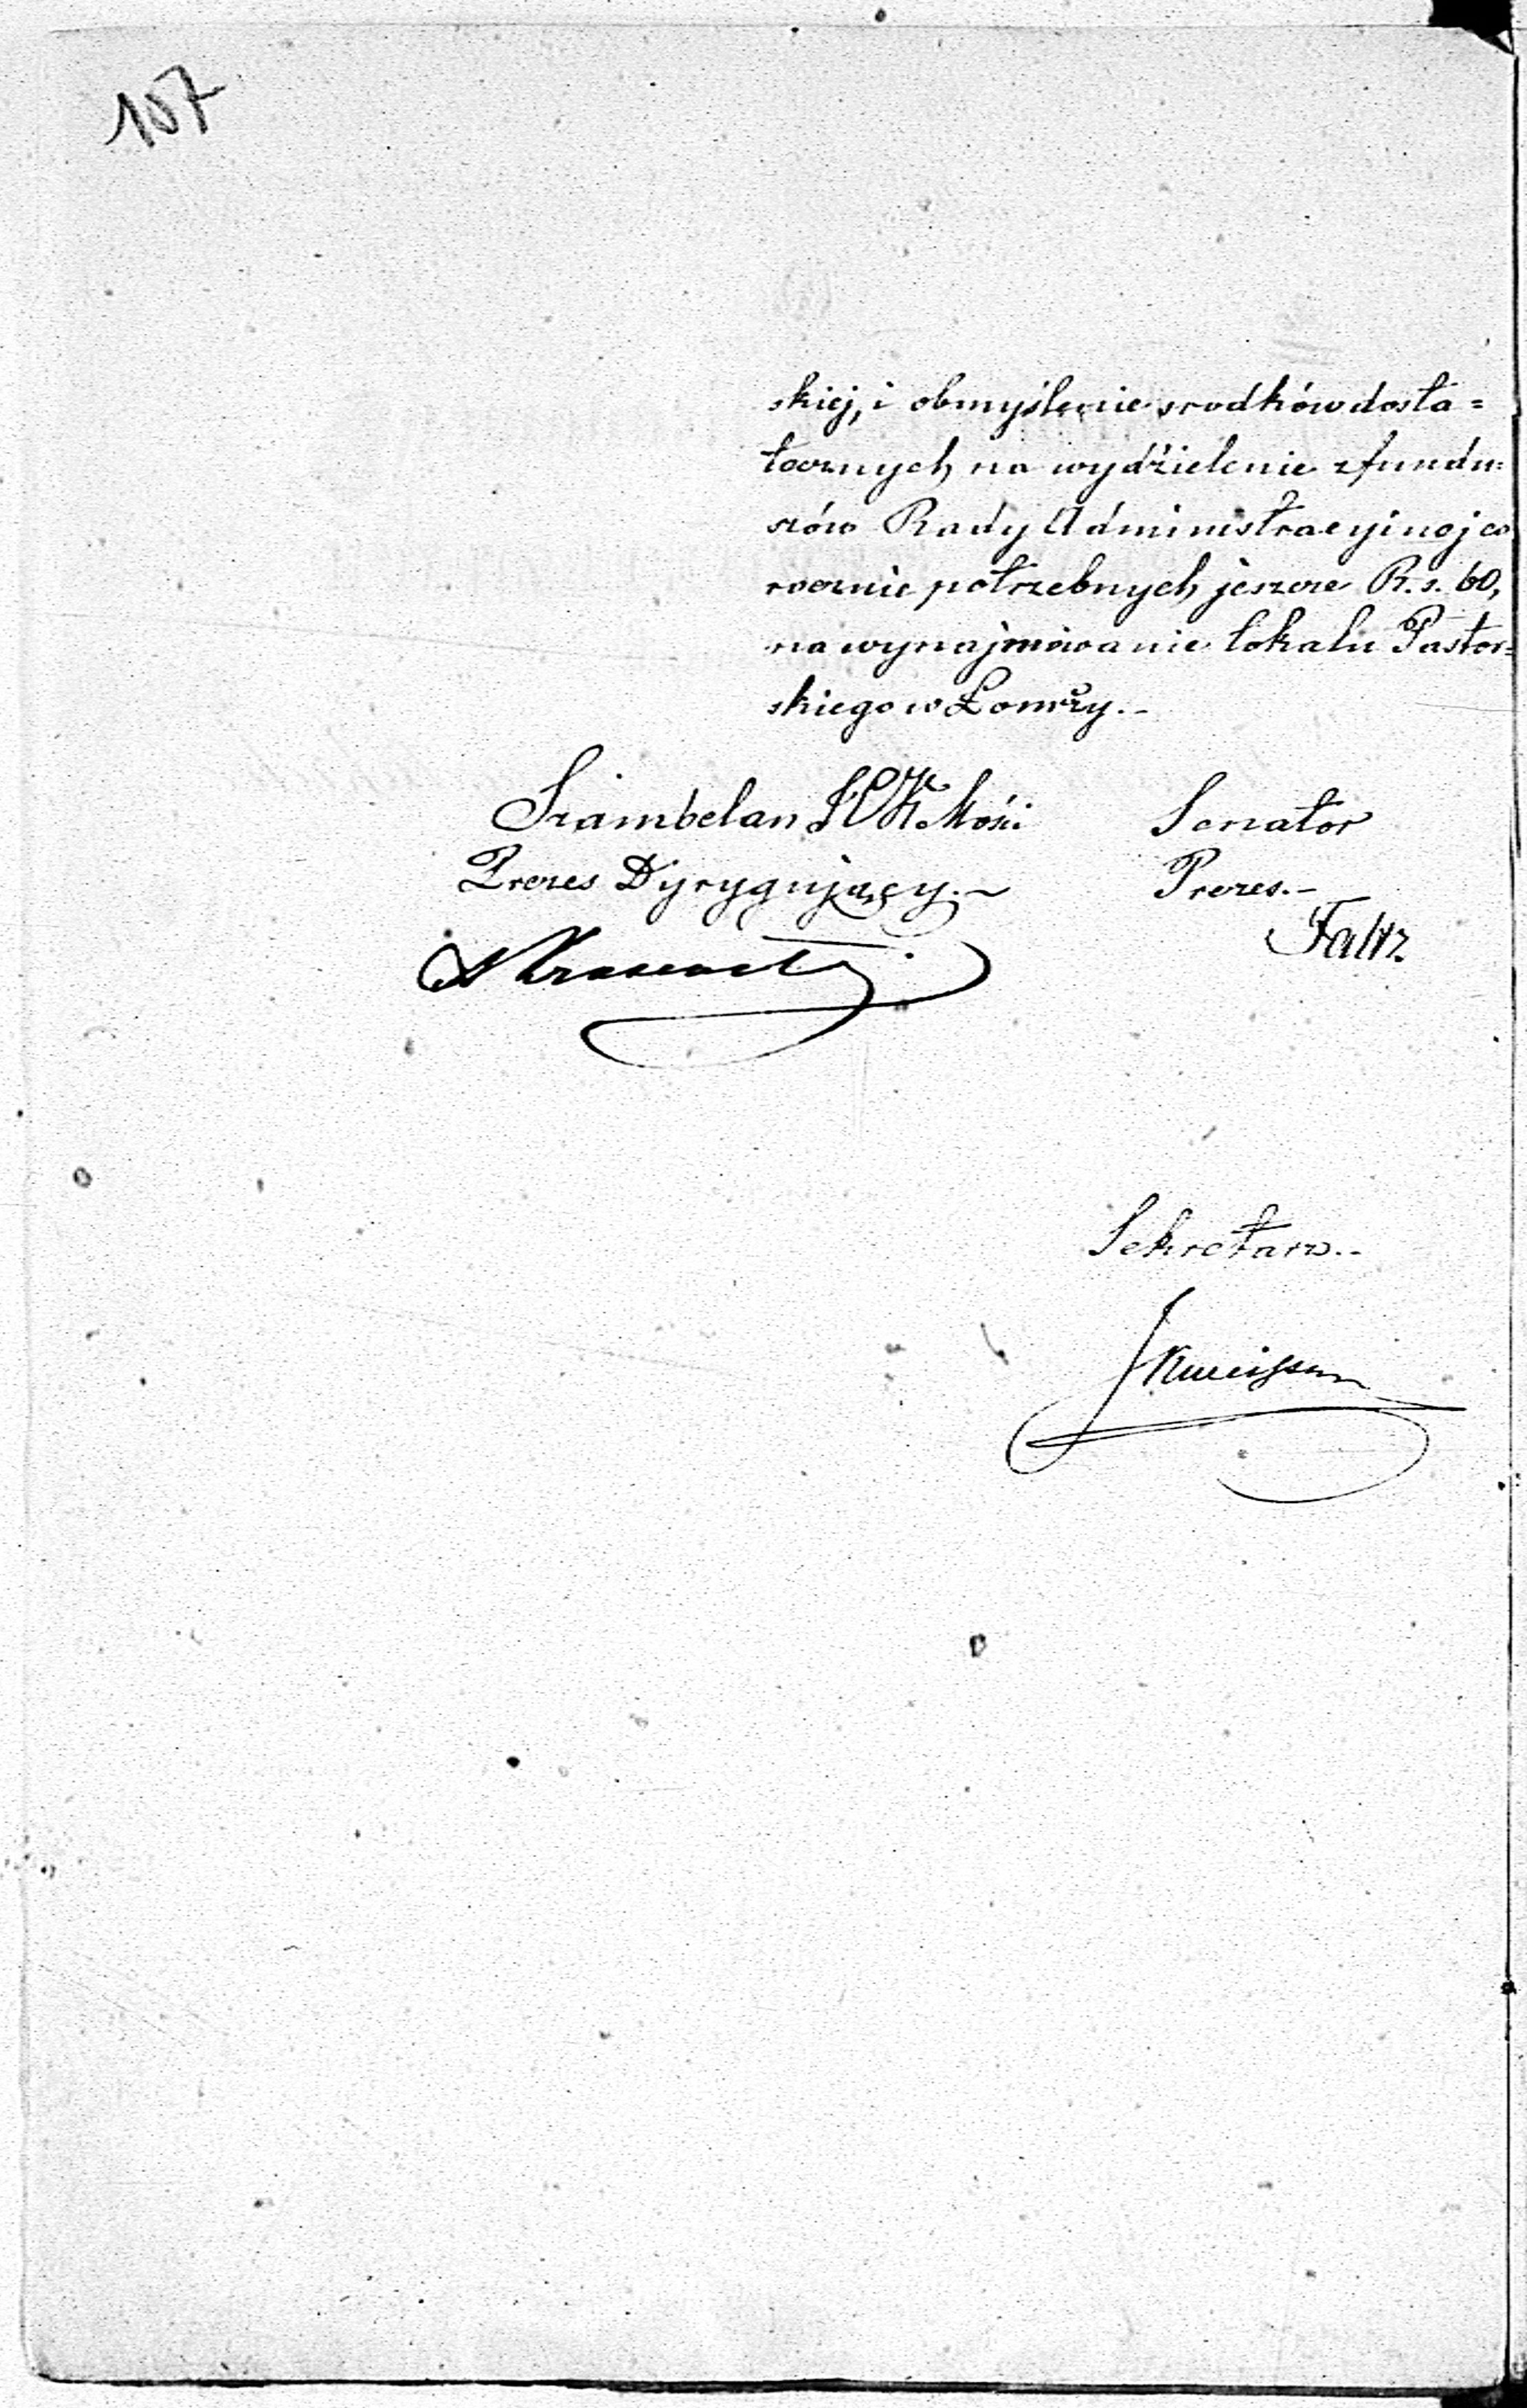 107
skiej, i obmyślenie srodków dosta=
tecznych, na wydzielenie z fundu=
szów Rady Administracyinej co
rocznie potrzebnych jeszcze R. s. 60,
na wynajmowanie lokalu Pastor=
skiego w Łomży.-
Szambelan J. C. K. Mości
Prezes Dyrygujący.~
Senator
Prezes.-
Faltz.
Sekretarz.-